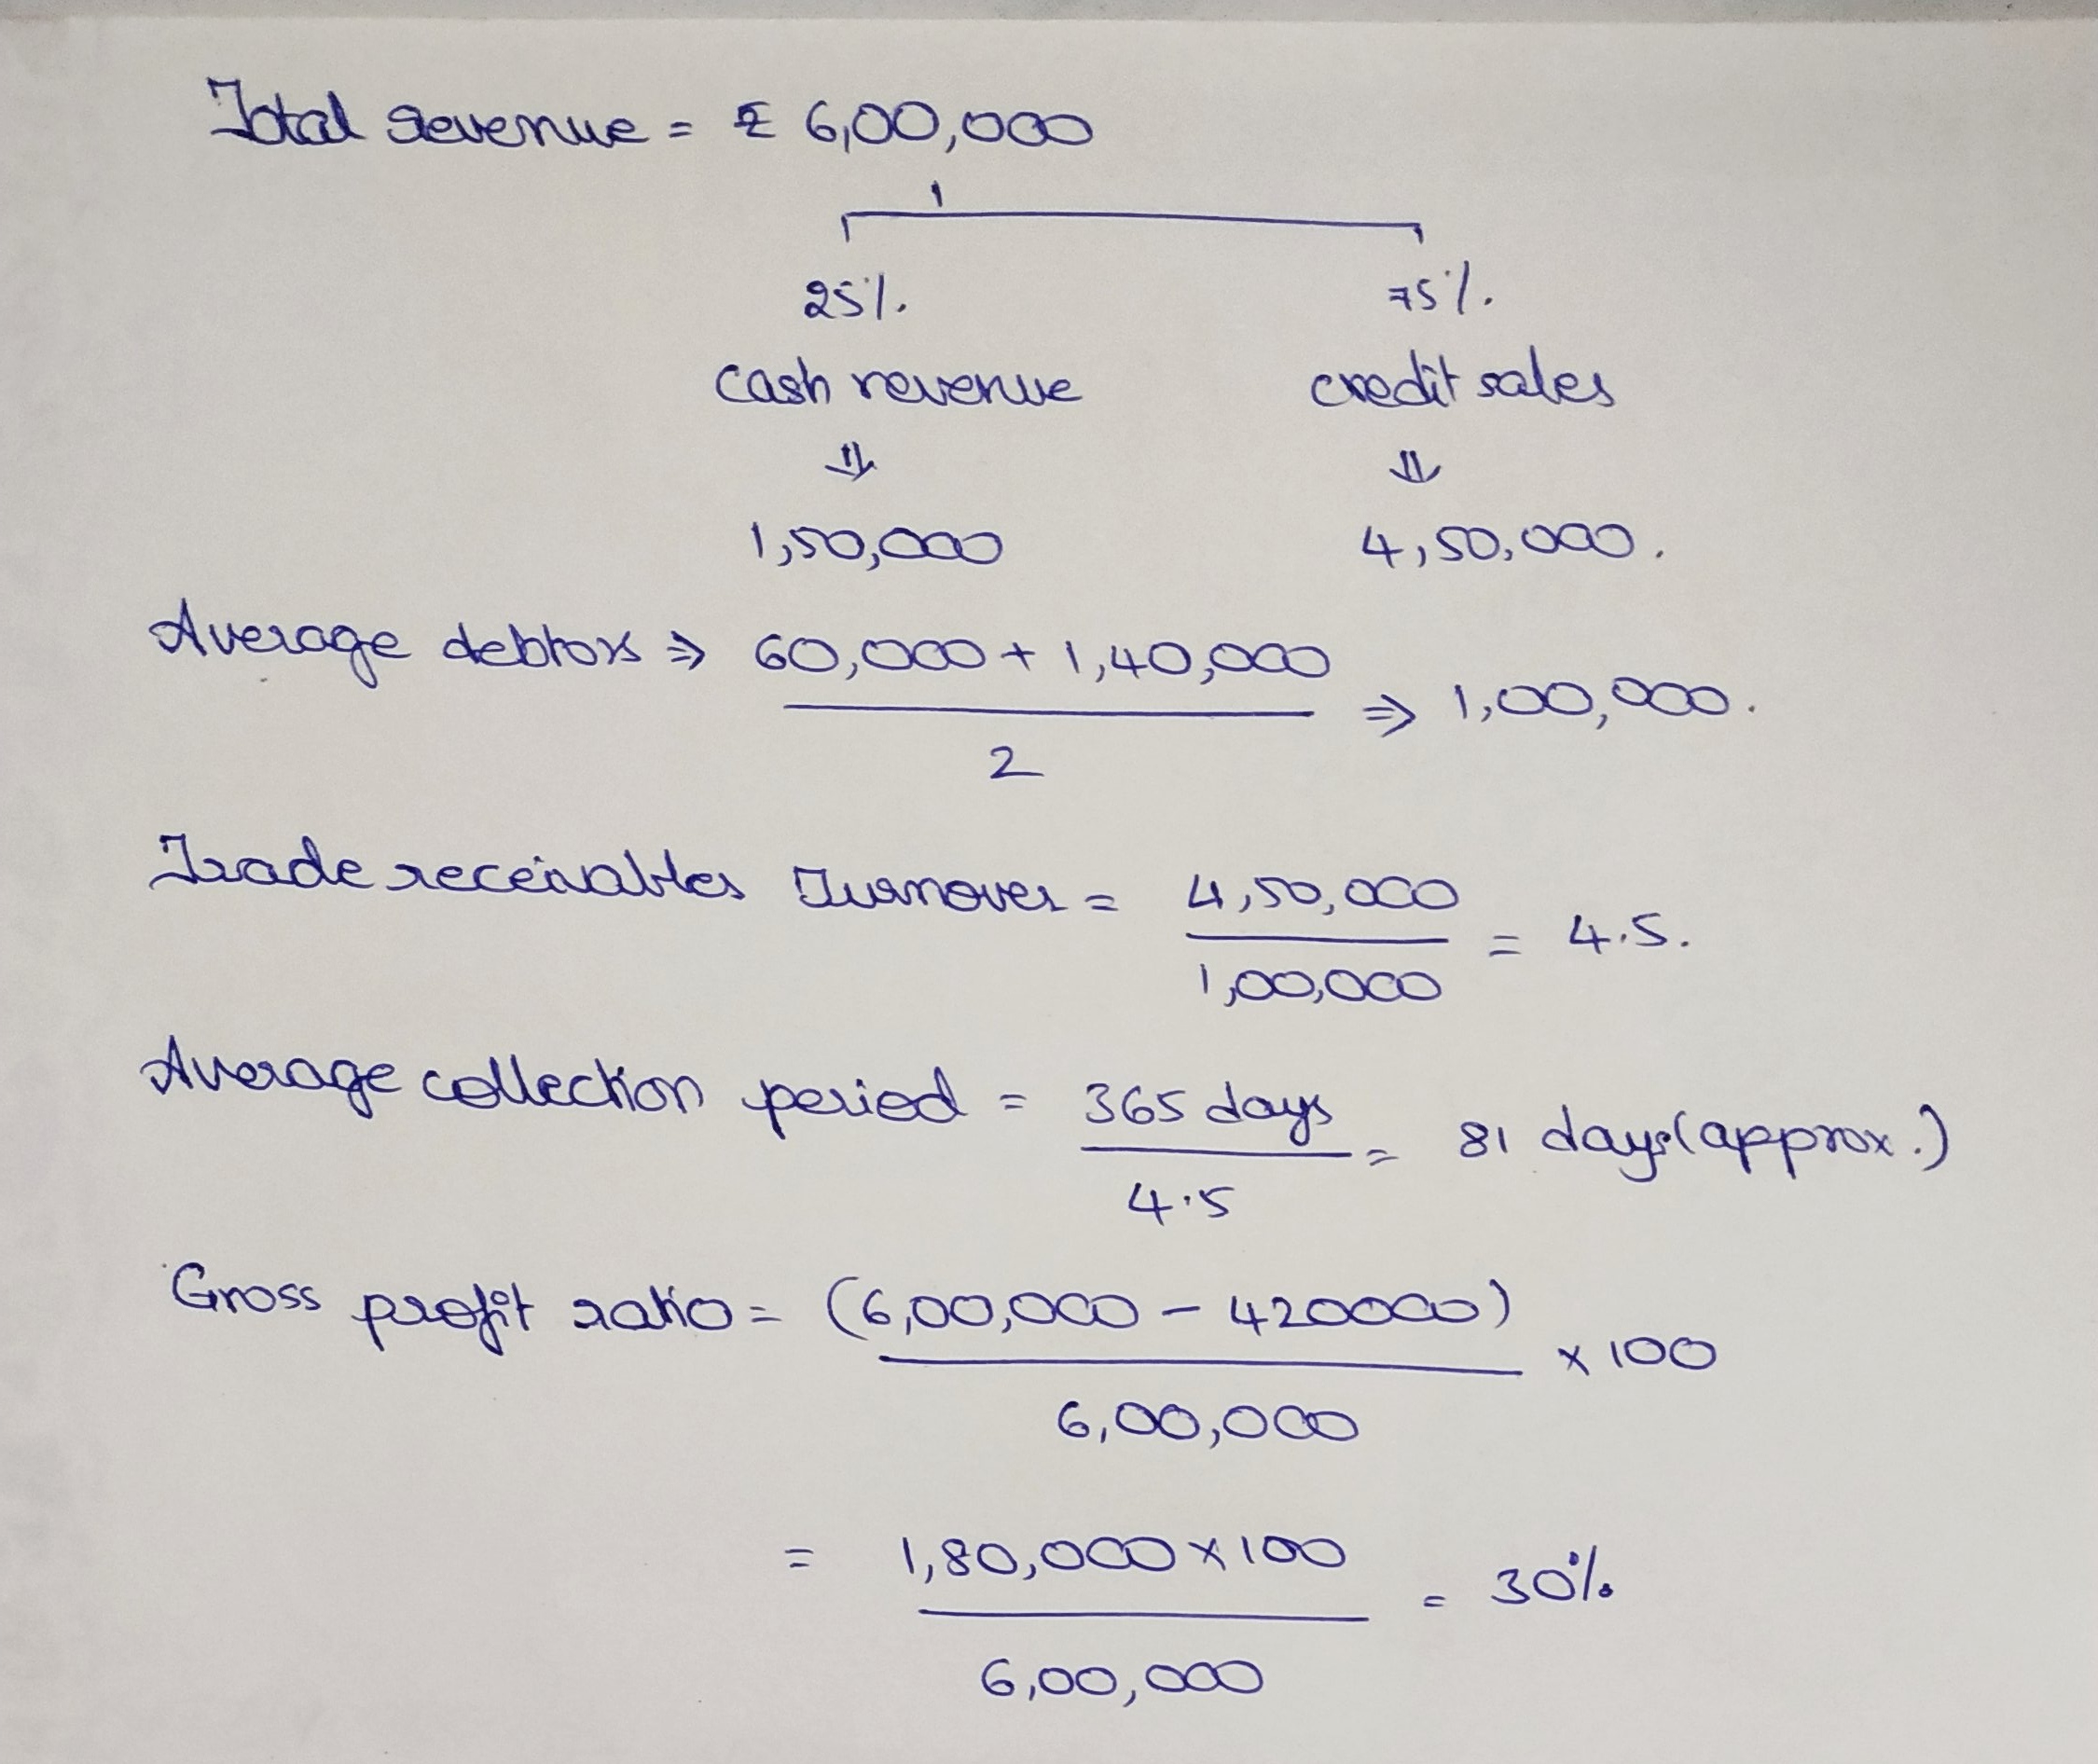 Total revenue = ₹ 6,00,000
25% 75%
cash revenue credit sales
⇓ ⇓
1,50,000 4,50,000.
Average debtors ⇒ 60,000 + 1,40,000 ⇒ 1,00,000.
2
Trade receivables Turnover = 4,50,000 = 4.5.
1,00,000
Average collection period = 365 days = 81 days (approx.)
4.5
Gross profit ratio = (6,00,000 - 420000) x 100
6,00,000
= 1,80,000 x 100 = 30%
6,00,000